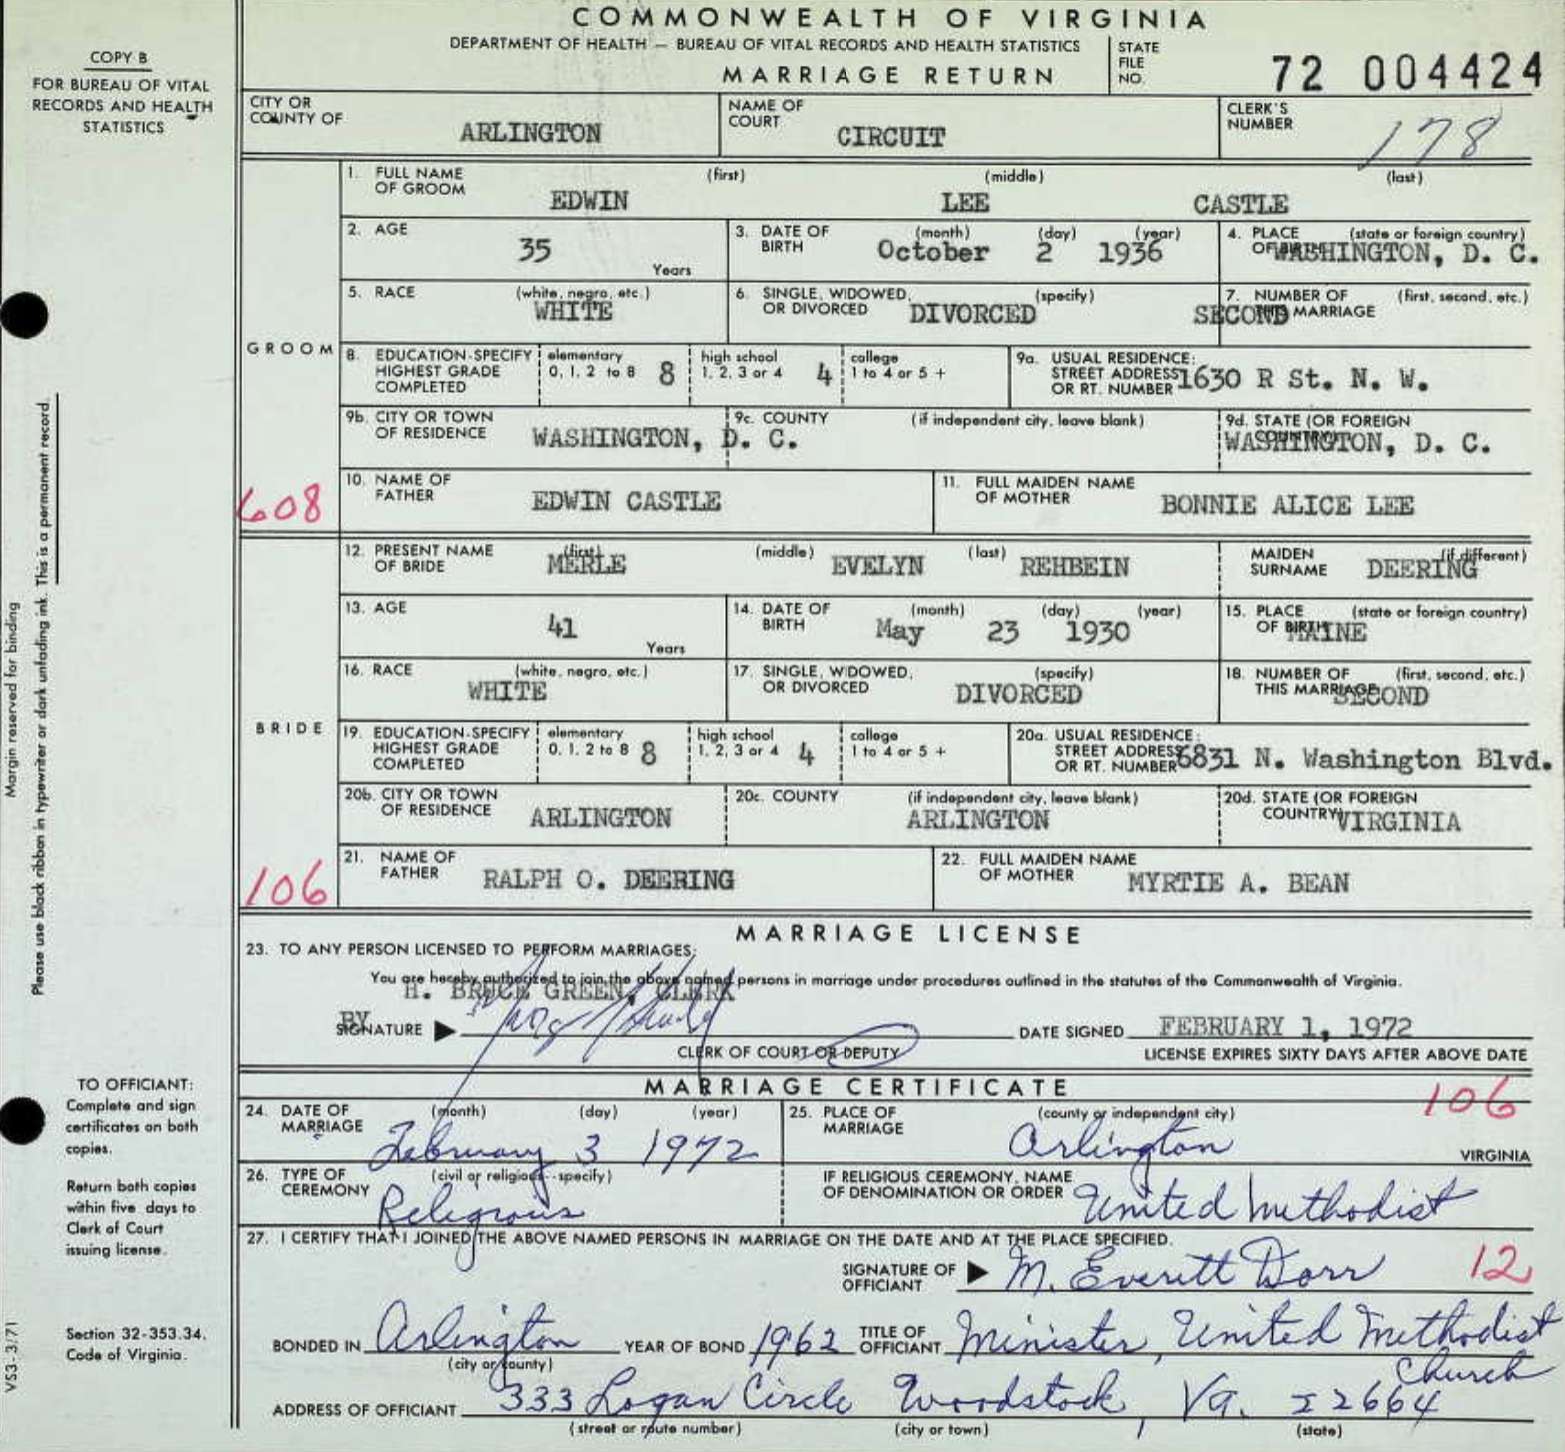 COMMONWEALTH OF VIRGINIA
DEPARTMENT OF HEALTH — BUREAU OF VITAL RECORDS AND HEALTH STATISTICS
MARRIAGE RETURN
STATE FILE NO. 72 004424
COPY B
FOR BUREAU OF VITAL
RECORDS AND HEALTH
STATISTICS
CITY OR COUNTY OF ARLINGTON NAME OF COURT CIRCUIT CLERK'S NUMBER 178
GROOM
1. FULL NAME OF GROOM (first) EDWIN (middle) LEE (last) CASTLE
2. AGE 35 Years 3. DATE OF BIRTH (month) (day) (year) October 2 1936 4. PLACE OF BIRTH (state or foreign country) WASHINGTON, D. C.
5. RACE (white, negro, etc.) WHITE 6. SINGLE, WIDOWED, OR DIVORCED (specify) DIVORCED 7. NUMBER OF THIS MARRIAGE (first, second, etc.) SECOND
8. EDUCATION-SPECIFY HIGHEST GRADE COMPLETED elementary 0, 1, 2 to 8 8 high school 1, 2, 3 or 4 4 college 1 to 4 or 5 + 9a. USUAL RESIDENCE: STREET ADDRESS OR RT. NUMBER 1630 R St. N. W.
9b. CITY OR TOWN OF RESIDENCE WASHINGTON, D. C. 9c. COUNTY (if independent city, leave blank) 9d. STATE (OR FOREIGN COUNTRY) WASHINGTON, D. C.
10. NAME OF FATHER EDWIN CASTLE 11. FULL MAIDEN NAME OF MOTHER BONNIE ALICE LEE
608
BRIDE
12. PRESENT NAME OF BRIDE (first) MERLE (middle) EVELYN (last) REHBEIN MAIDEN SURNAME (if different) DEERING
13. AGE 41 Years 14. DATE OF BIRTH (month) (day) (year) May 23 1930 15. PLACE OF BIRTH (state or foreign country) MAINE
16. RACE (white, negro, etc.) WHITE 17. SINGLE, WIDOWED, OR DIVORCED (specify) DIVORCED 18. NUMBER OF THIS MARRIAGE (first, second, etc.) SECOND
19. EDUCATION-SPECIFY HIGHEST GRADE COMPLETED elementary 0, 1, 2 to 8 8 high school 1, 2, 3 or 4 4 college 1 to 4 or 5 + 20a. USUAL RESIDENCE: STREET ADDRESS OR RT. NUMBER 6831 N. Washington Blvd.
20b. CITY OR TOWN OF RESIDENCE ARLINGTON 20c. COUNTY (if independent city, leave blank) ARLINGTON 20d. STATE (OR FOREIGN COUNTRY) VIRGINIA
21. NAME OF FATHER RALPH O. DEERING 22. FULL MAIDEN NAME OF MOTHER MYRTIE A. BEAN
106
MARRIAGE LICENSE
23. TO ANY PERSON LICENSED TO PERFORM MARRIAGES:
You are hereby authorized to join the above named persons in marriage under procedures outlined in the statutes of the Commonwealth of Virginia.
H. BRUCE GREEN, CLERK
BY
SIGNATURE ▶ DATE SIGNED FEBRUARY 1, 1972
CLERK OF COURT OR DEPUTY LICENSE EXPIRES SIXTY DAYS AFTER ABOVE DATE
MARRIAGE CERTIFICATE
106
24. DATE OF MARRIAGE (month) (day) (year) February 3 1972 25. PLACE OF MARRIAGE (county or independent city) Arlington VIRGINIA
26. TYPE OF CEREMONY (civil or religious--specify) Religious IF RELIGIOUS CEREMONY, NAME OF DENOMINATION OR ORDER United Methodist
27. I CERTIFY THAT I JOINED THE ABOVE NAMED PERSONS IN MARRIAGE ON THE DATE AND AT THE PLACE SPECIFIED.
SIGNATURE OF OFFICIANT ▶ M. Everett Dorr 12
BONDED IN Arlington (city or county) YEAR OF BOND 1962 TITLE OF OFFICIANT Minister, United Methodist Church
ADDRESS OF OFFICIANT 333 Logan Circle Woodstock, Va. 22664
(street or route number) (city or town) (state)
Margin reserved for binding
Please use black ribbon in typewriter or dark unfading ink. This is a permanent record.
TO OFFICIANT:
Complete and sign
certificates on both
copies.
Return both copies
within five days to
Clerk of Court
issuing license.
Section 32-353.34,
Code of Virginia.
VS3-3/71